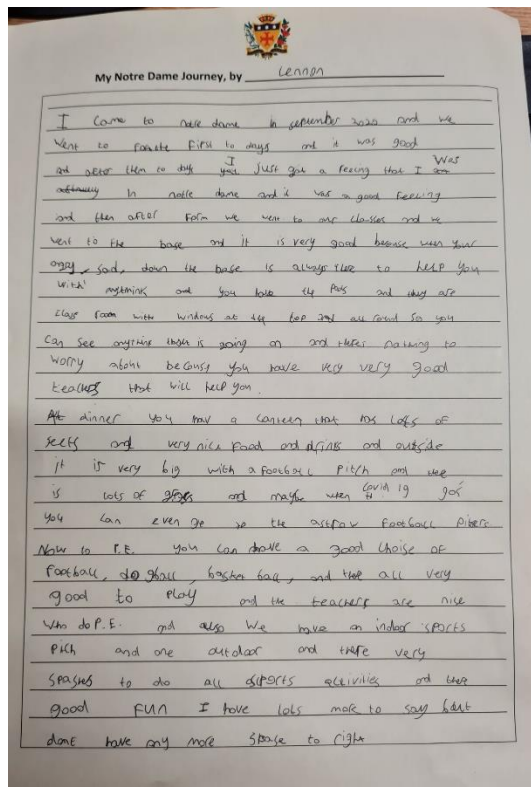 My Notre Dame Journey, by Lennon
I came to notre dame in september 2020 and we
went to first to days and it was good
and after them to days I just got a feeling that I was
in notre dame and it was a good feeling
and then after form we went to our classes and we
went to the base and it is very good because when your
angry, sad, down the base is always there to help you
with anythink and you have the Pods and they are
class room with windows at the top and all round so you
can see anything thats is going on and theres nothing to
worry about because you have very very good
teachers that will help you.
At dinner you hav a canteen that has lots of
seets and very nice food and drinks and outside
it is very big with a football pitch and
is lots of and maybe when covid 19
you can even go to the football
Now to P.E. you can have a good choise of
football, dogball, basket ball, and all very
good to play and the teachers are nice
who do P.E. and also we have an indoor sports
pitch and one outdoor and there very
to do all activities and there
good FUN I have lots more to say but
dont have any more to right